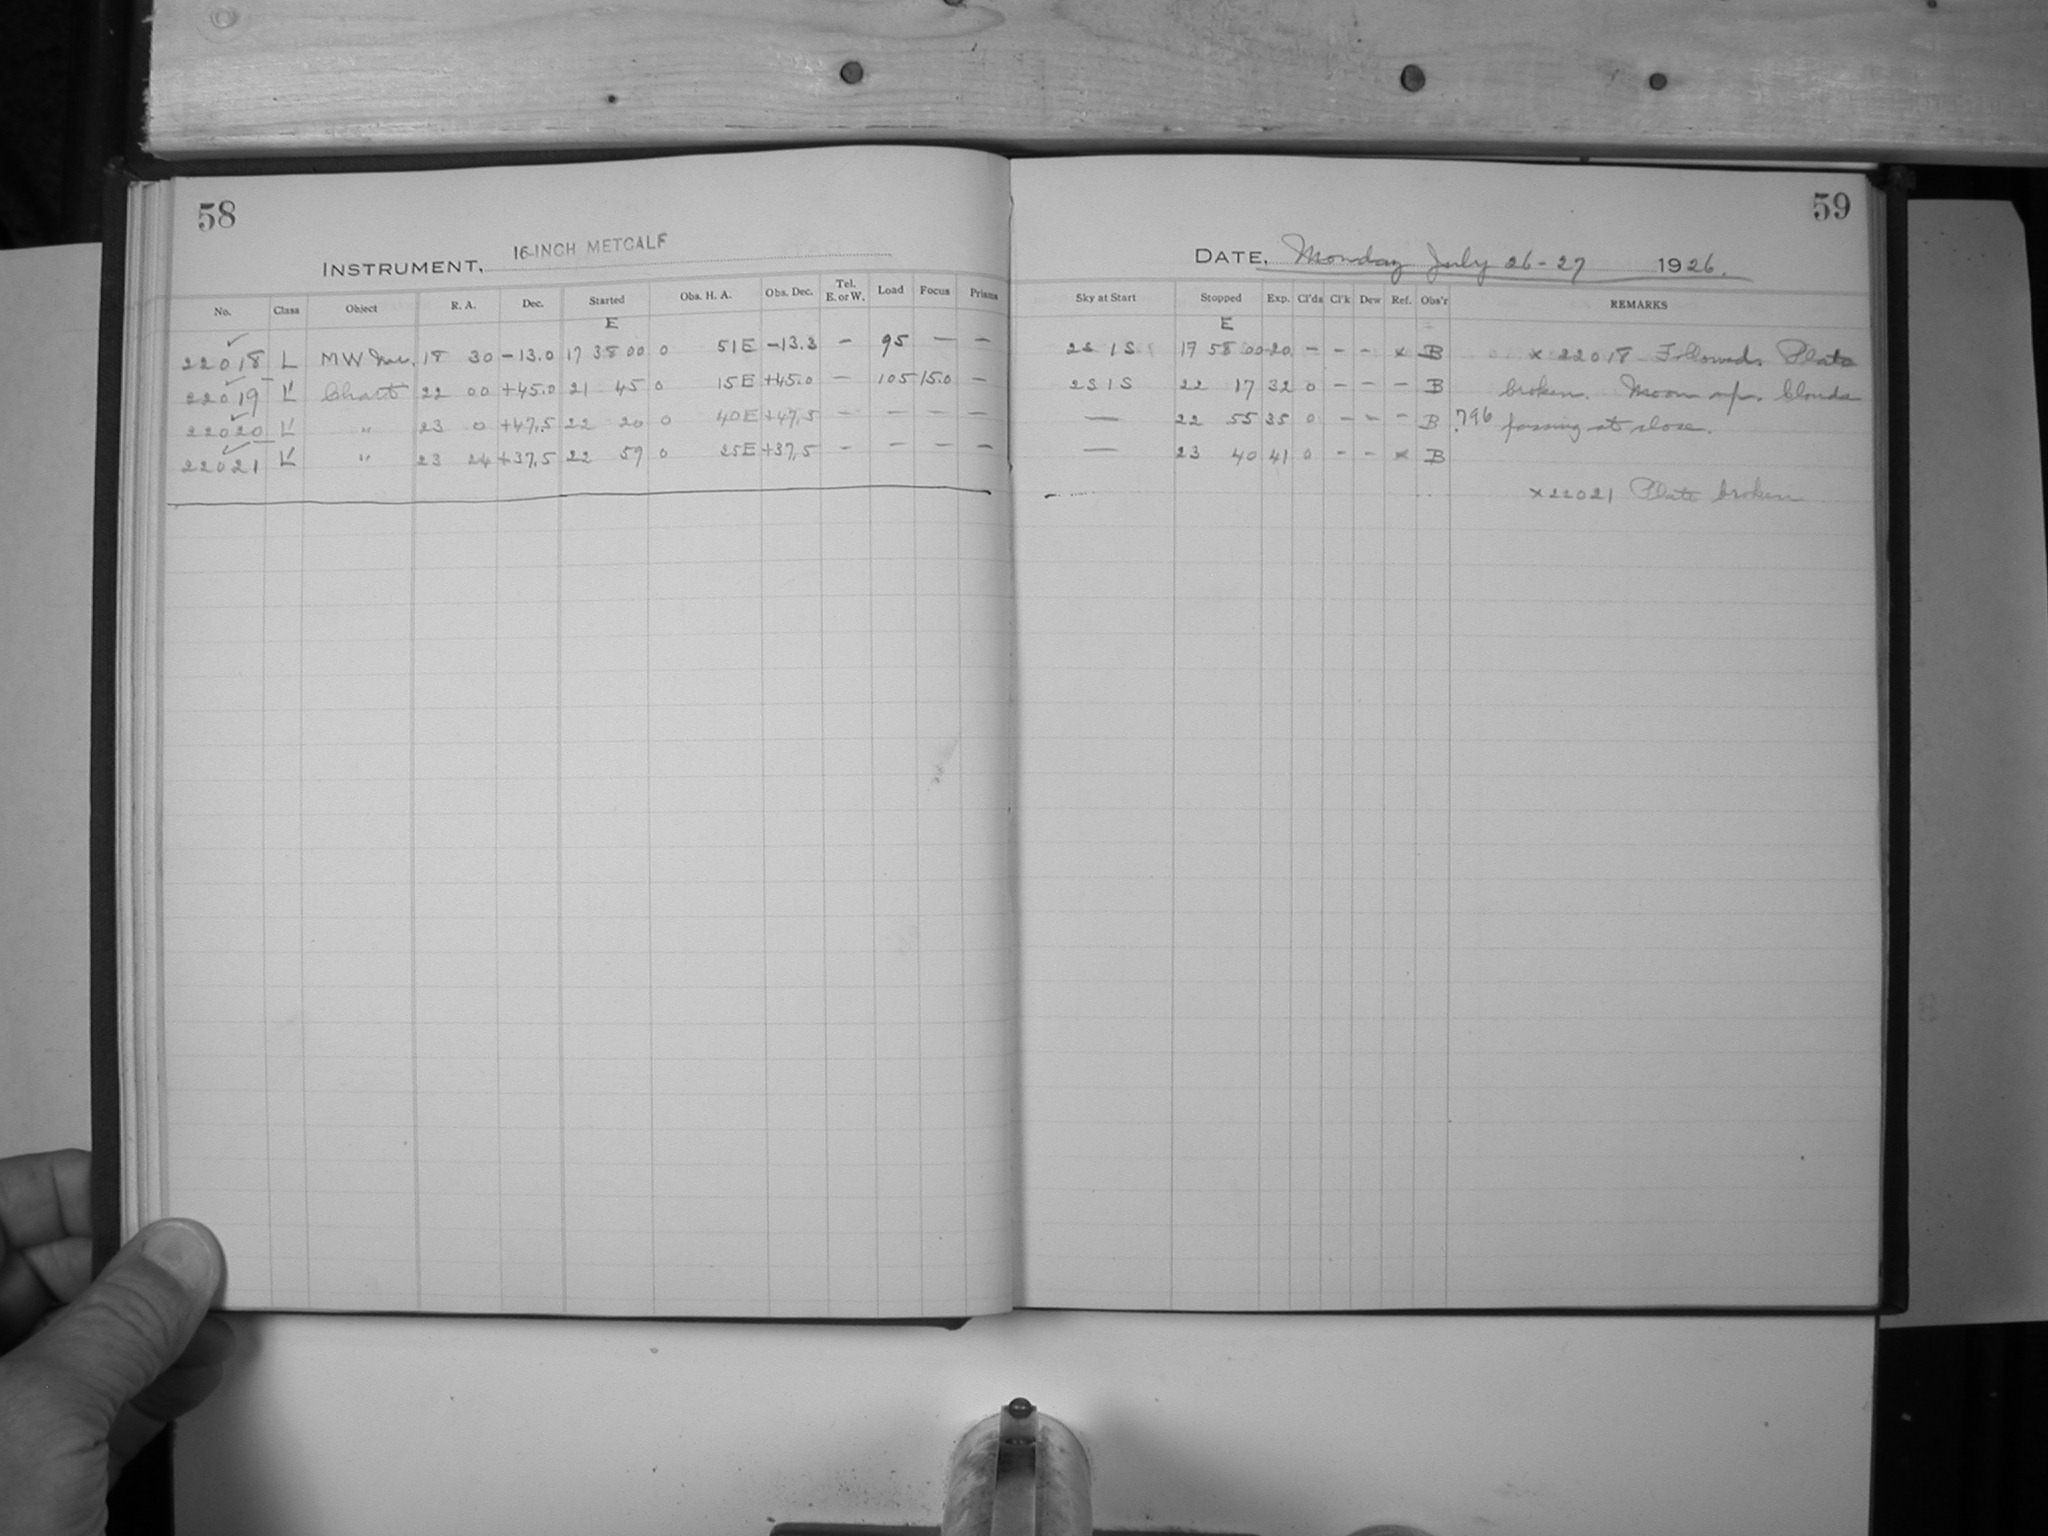 58
INSTRUMENT, 16-INCH METCALF
No. Class Object R. A. Dec. Started Obs. H. A. Obs. Dec. Tel. E. or W. Load Focus Prisms
E
22018 L MW 18 30 -13.0 17 38 00 0 51E -13.3 - 95 - -
22019 L' Chart 22 00 +45.0 21 45 0 15E +45.0 - 105 15.0 -
22020 L' " 23 0 +47.5 22 20 0 40E +47.5 - - - -
22021 L' " 23 24 +37.5 22 59 0 25E +37.5 - - - -
59
DATE, Monday July 26-27 1926.
Sky at Start Stopped Exp. Cl'ds Cl'k Dew Ref. Obs'r REMARKS
E
2S 1S 17 58 00 20 - - - x B x 22018 Followed. Plate
2S 1S 22 17 32 0 - - - B broken. Moon up. Clouds
— 22 55 35 0 - - - B .796 passing at close.
— 23 40 41 0 - - x B
x 22021 Plate broken